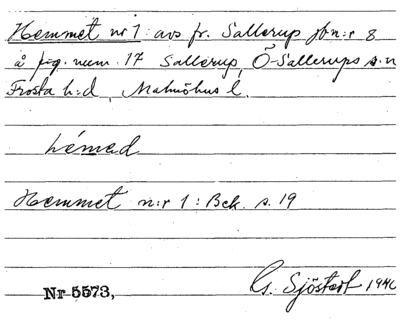 Hemmet nr 1: avs fr. Sallerup jbn:r 8
å fig. num. 17 Sallerup, Ö-Sallerups s:n
Frosta h:d, Malmöhus l.
hémed
Hemmet n:r 1: Bek. s. 19
Nr 5573, G. Sjöstedt 194